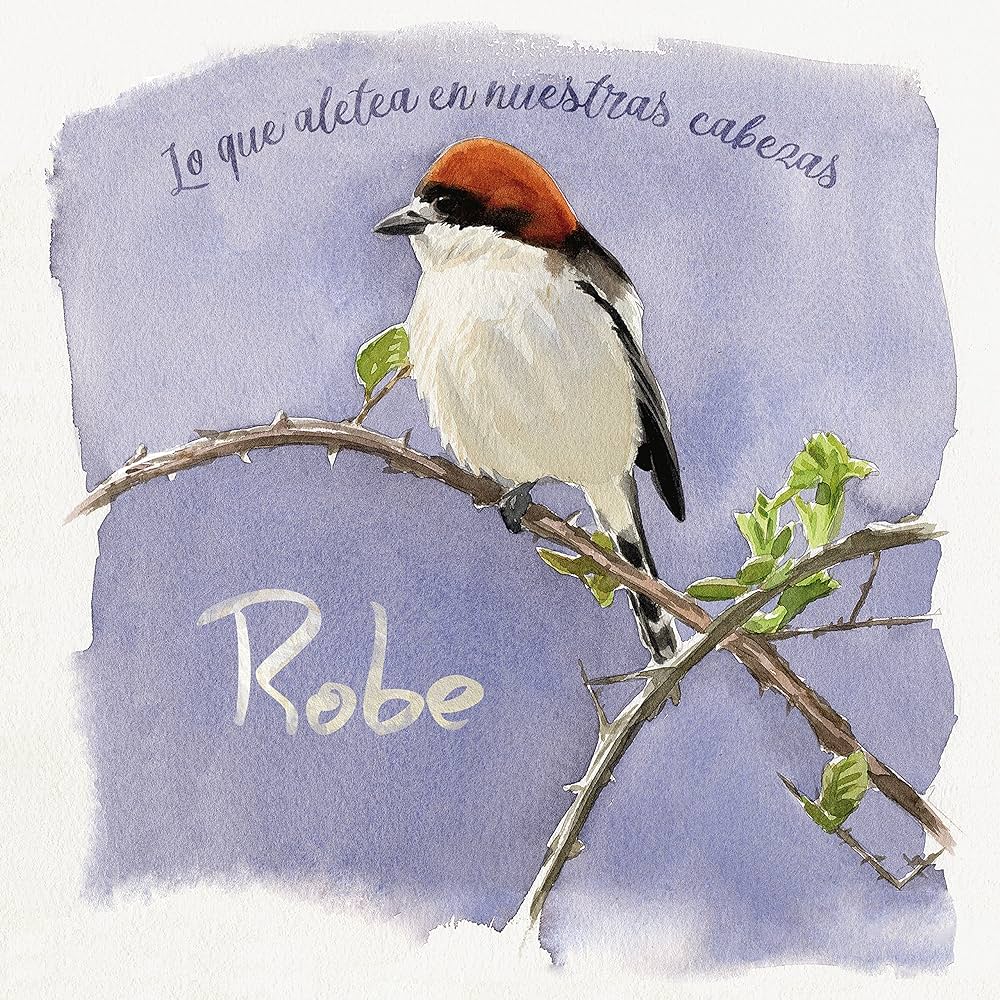 Lo que aletea en nuestras cabezas
Robe